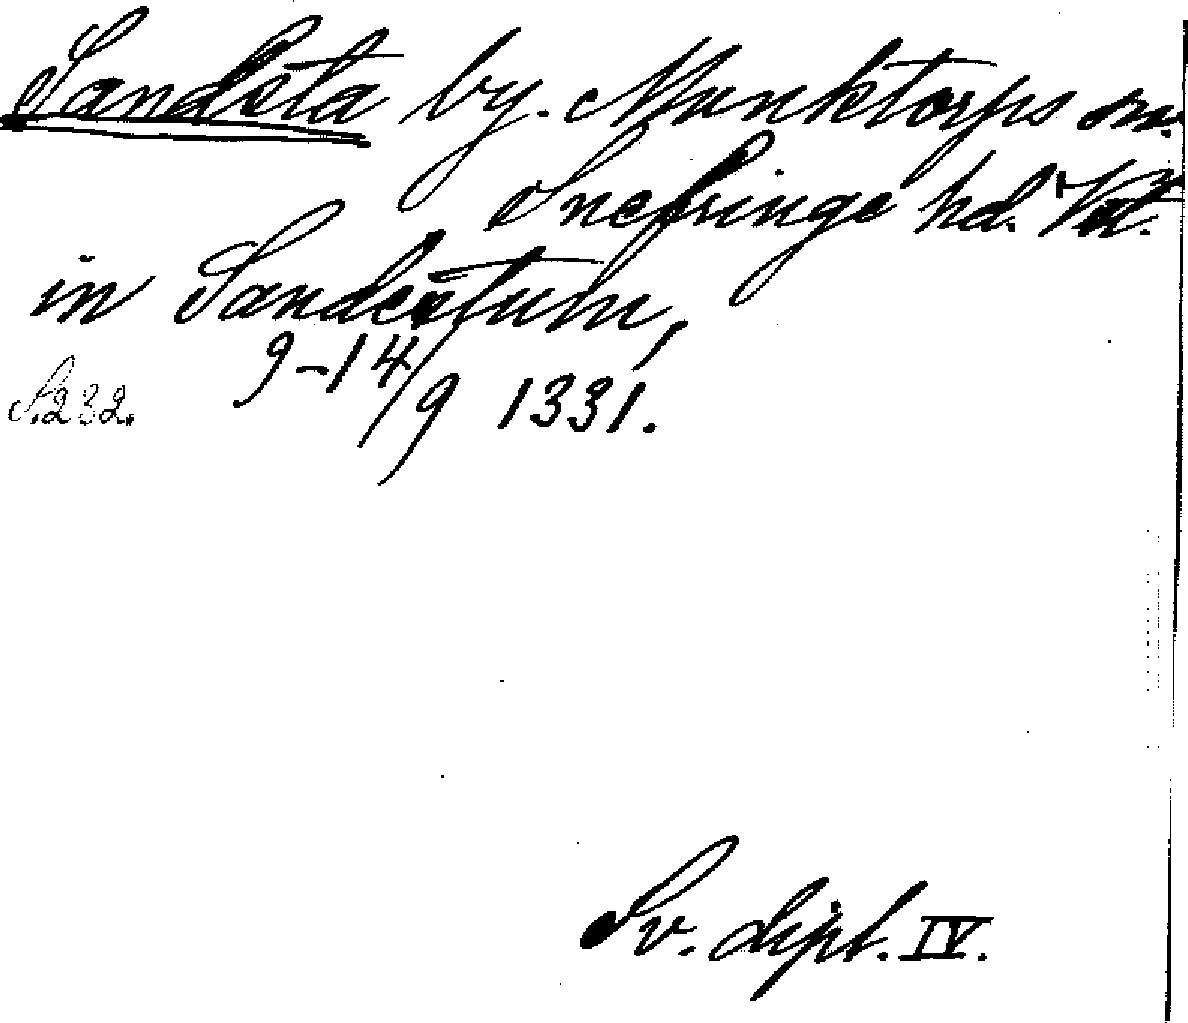 Sandsta by. Munktorps sn.
Snefringe hd. Vstl.
in Sandastum,
9-14/9 1331.
S.232.
Sv. dipl. IV.